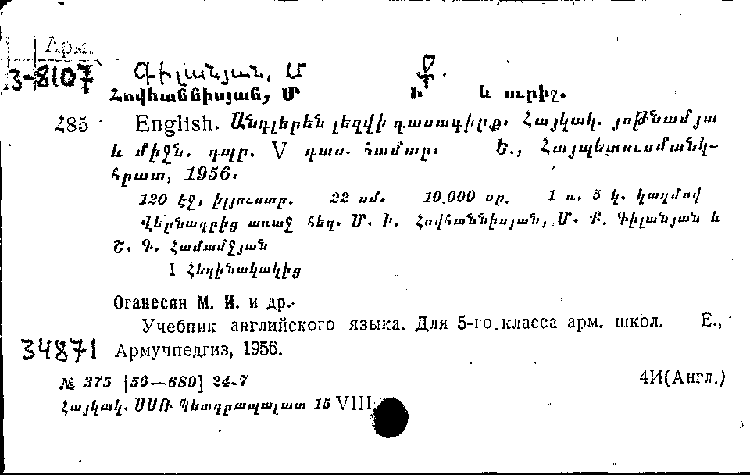 Арм.
3-8107
Գիլանյան, Մ
Հովհաննիսյան, Մ Ի և ուրիշ.
285 English. Անգլերեն լեզվի դասագիրք. Հայկակ. յոթնամյա
և միջն. դպր. V դաս. համար. Ե., Հայպետուսմանկ-
հրատ, 1956.
120 էջ, իլյուստր. 22 սմ. 10.000 օր. 1 ռ. 5 կ. կազմով
Վերնագրից առաջ հեղ. Մ. Ի. Հովհաննիսյան, Մ. Բ. Գիլանյան և
Շ. Գ. Համամջյան
I Հեղինակակից
Оганесян М. И. и др.
Учебник английского языка. Для 5-го класса арм. школ. Е.,
34871 Армучпедгиз, 1956.
№ 375 [56—680] 24-7 4И(Англ.)
Հայկակ. ՍՍՌ Գետգրապալատ 15 VIII